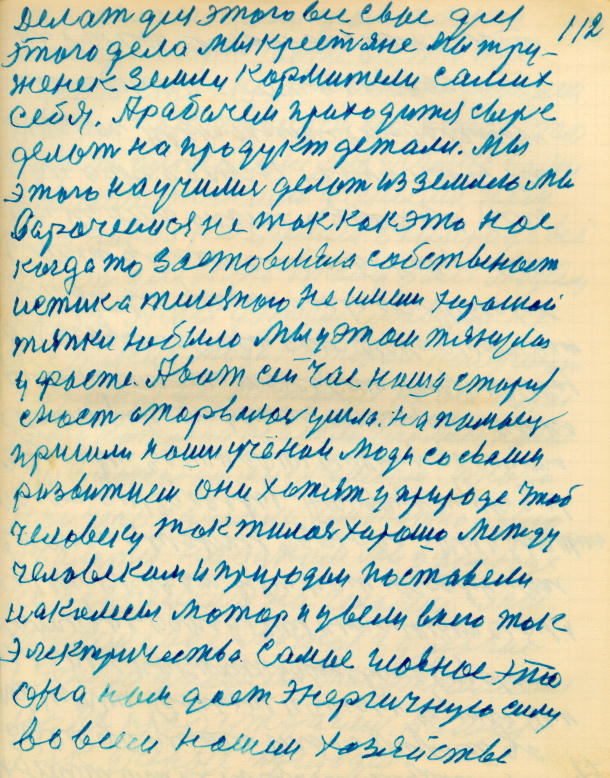 112
Делат для этого все свое для
этого дела мы крестяне мы тру-
женек Земли Кормители самих
себя. А рабочем приходится сырье
делат на продукт детали. Мы
этого научились делат из земли мы
не так как это нас
когда то Заставляла собственост
истика жилезного не имели харошой
тяпки небыло Мы у этом тянулас
А вот сей час наша стара
сност аторвалас ушла. на помощ
пришли наши учёнаи люди со своим
развитием они хотят у природе чтоб
человеку так жилося харашо между
человеком и природаи поставели
на колесы мотор и ввели в него ток
Электричества Самые главное это
она нам дает Энергичную силу
во всем нашем хозяйстве